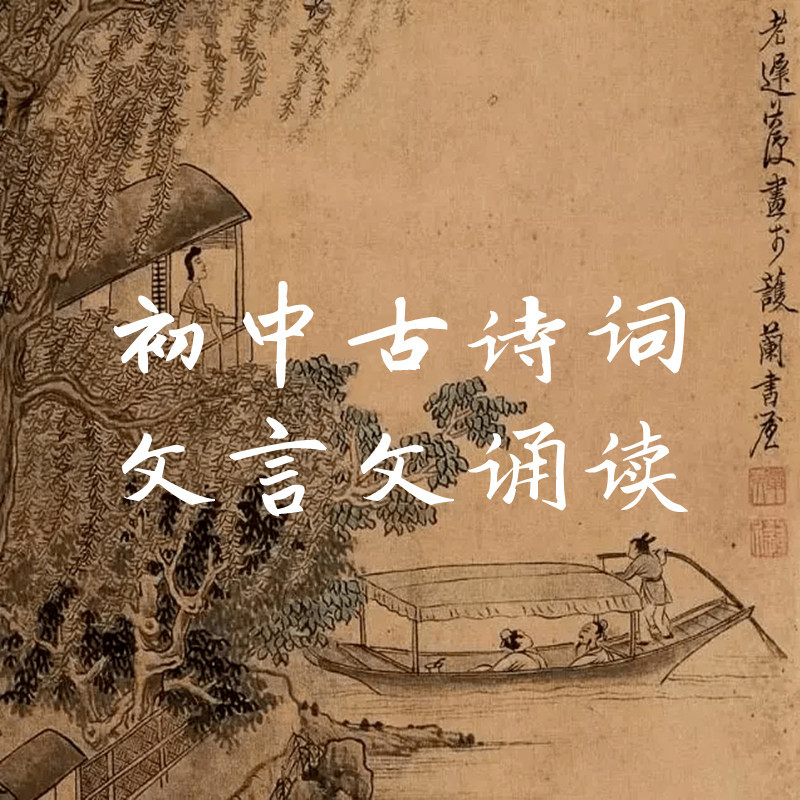 初中古诗词
文言文诵读
老遲洪綬畫於護蘭書屋